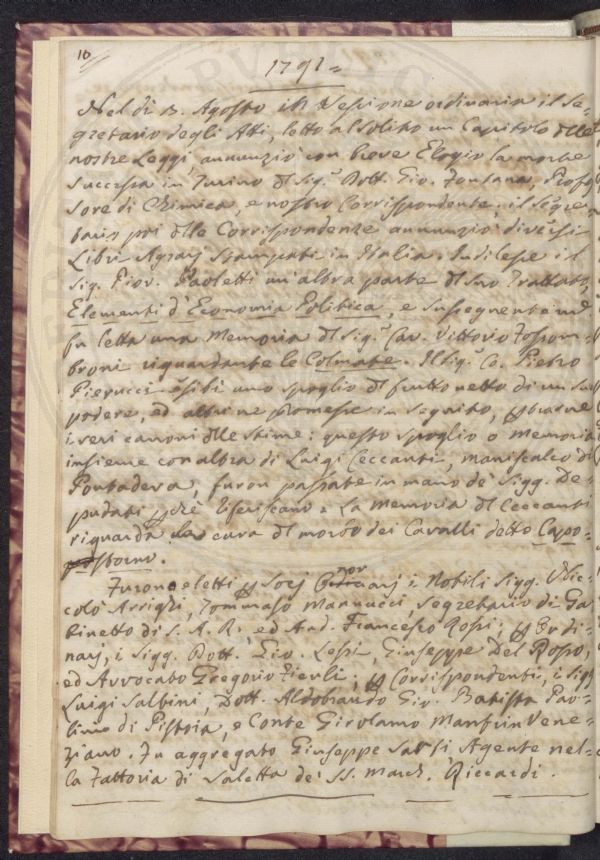 10
1791=
Nel dì 3. Agosto in Sessione ordinaria il Se-
gretario degli Atti, letto al solito un Capitolo dlle
nostre Leggi, annunziò con breve Elogio la morte
successa in Turino dl Sig.r Dott. Gio. Fontana, Profes
sore di Chimica, e nostro Corrispondente; il Segre
tario poi dlle Corrispondenze annunziò diversi
Libri Agrarj stampati in Italia. Indi lesse il
Sig. Prop. Paoletti un'altra parte dl suo Trattato,
Elementi d'Economia Politica, e susseguentem.e
fu letta una Memoria dl Sig.r Cav. Vittorio Fossom-
broni riguardante le Colmate. Il Sig.r C. Pietro
Pierucci esibì uno spoglio dl frutto netto di un suo
podere, ed altri ne promesse in seguito, p trarne
i veri canoni dlle stime: questo spoglio o Memoria
insieme con altra di Luigi Ceccanti, maniscalco di
Pontadera, furon passate in mano de' Sigg. De-
putati pchè riferiscano. La Memoria dl Ceccanti
riguarda la cura dl morbo dei Cavalli detto Capo-
storno.
Furono eletti p Socj Onorarj i Nobili Sigg. Nic-
colò Arrighi, Tommaso Mannucci, Segretario di Ga-
binetto di S. A. R., ed And. Francesco Rossi; p Ordi-
narj, i Sigg. Dott. Gio. Lessi, Giuseppe Del Rosso,
ed Avvocato Gregorio Fierli; p Corrispondenti, i Sigg.
Luigi Salbini, Dott. Aldobrando Gio. Batista Pao-
lino di Pistoia, e Conte Girolamo Manfrin Vene-
ziano. Fu aggregato Giuseppe Sarsi Agente nel-
la Fattoria di Saletta de' SS. March. Riccardi.